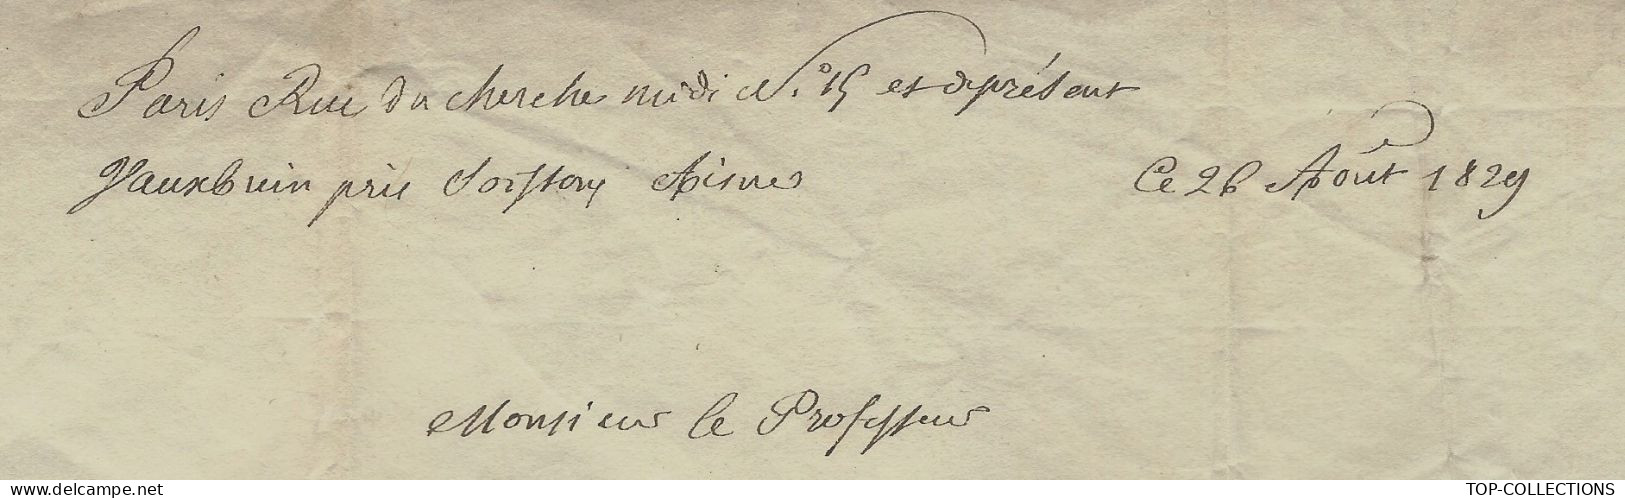 Paris Rue du cherche midi N.° 15 et aprésent
Vauxbuin près Soissons Aisne Ce 26 Août 1829
Monsieur le Professeur
www.delcampe.net TOP-COLLECTIONS